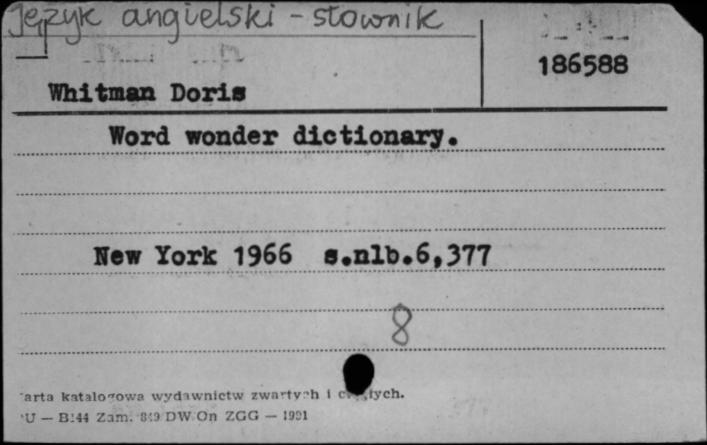 Język angielski - słownik
186588
Whitman Doris
Word wonder dictionary.
New York 1966 s.nlb.6,377
8
arta katalogowa wydawnictw zwartych i
U — B144 Zam. 849 DW On ZGG — 1991